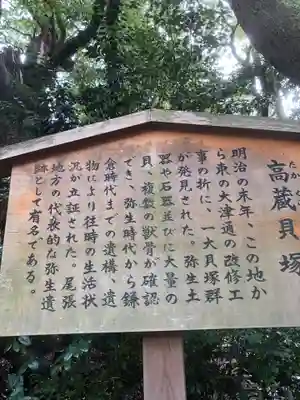 高蔵貝塚
たか
明治の末年、この地か
ら東の大津通の改修工
事の折に、一大貝塚群
が発見された。弥生土
器や石器並びに大量の
貝、複数の獣骨が確認
でき、弥生時代から鎌
倉時代までの遺構、遺
物により往時の生活状
況が立証された。尾張
地方の代表的な弥生遺
跡として有名である。